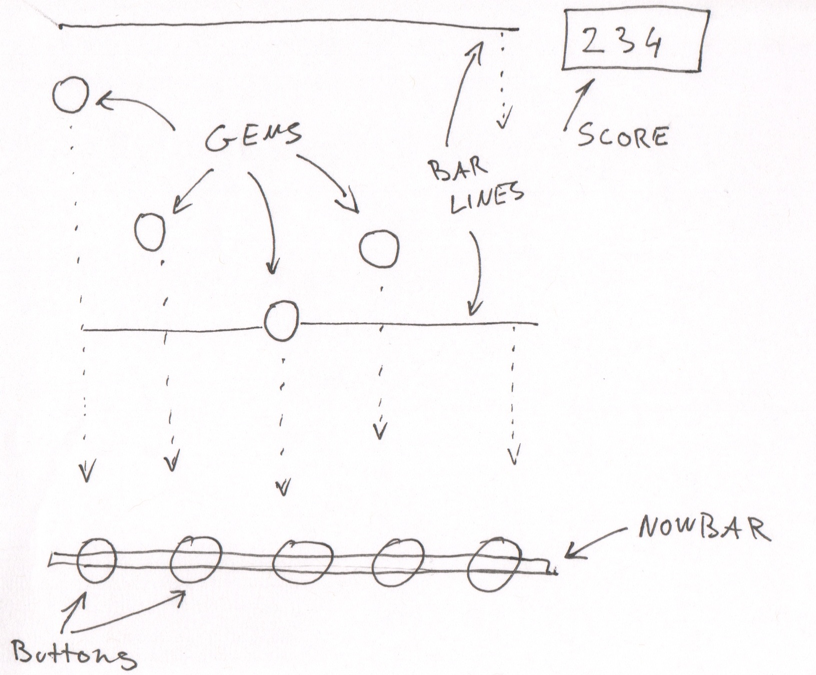 234
SCORE
GEMS
BAR
LINES
NOWBAR
Buttons